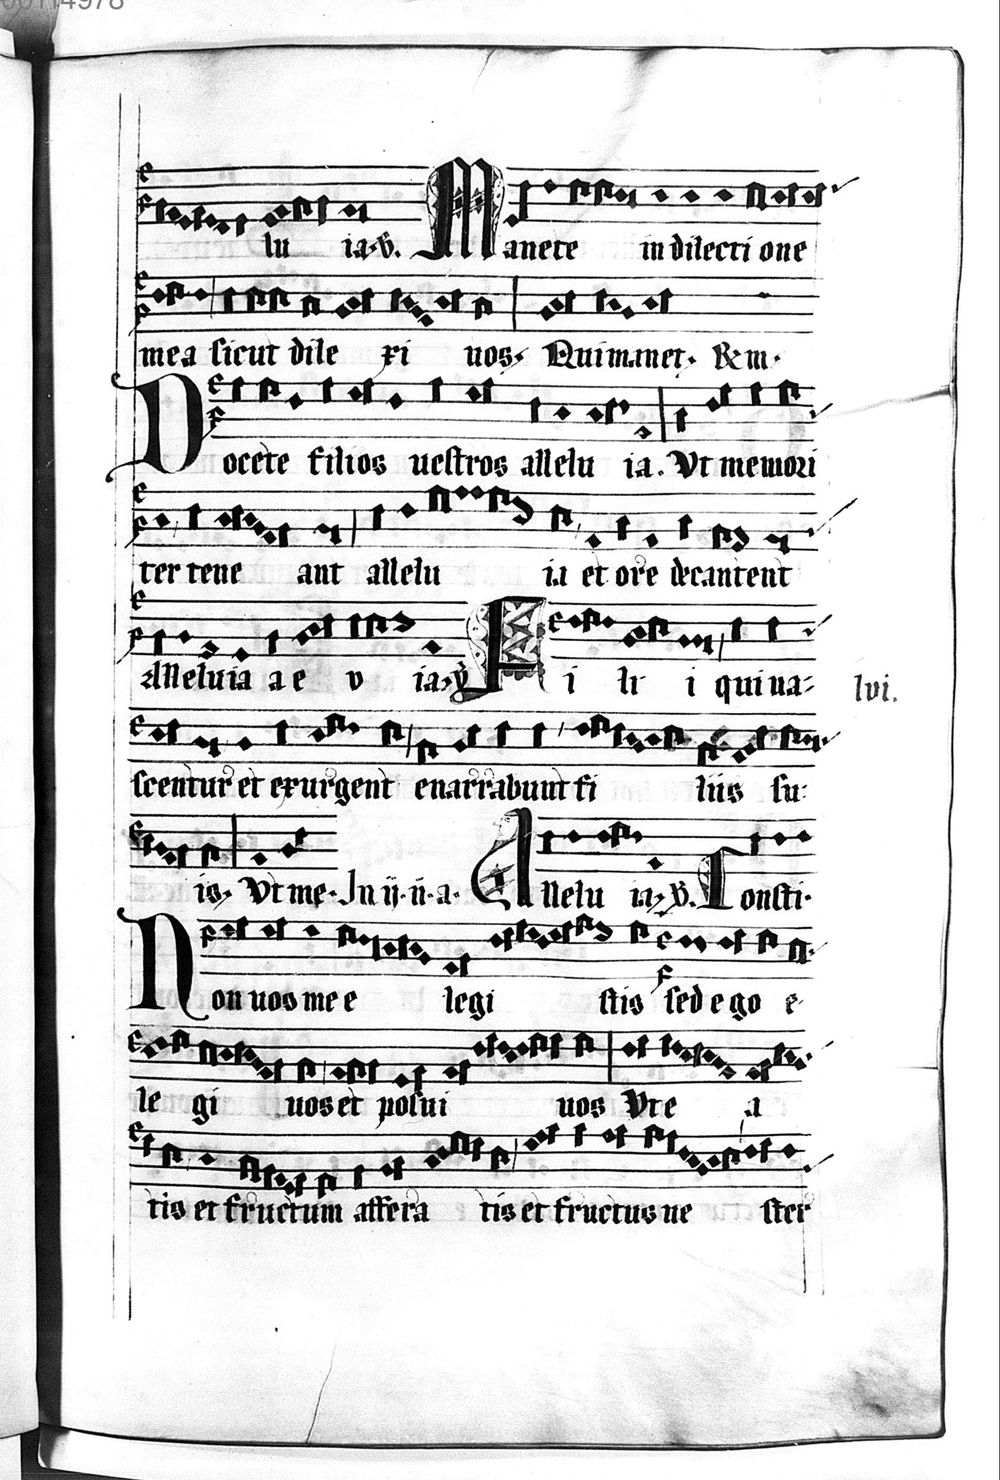 lu ia. v. Manete in dilecti one
mea sicut dile xi uos. Qui manet. & in.
Docete filios uestros allelu ia. Vt memori
ter tene ant allelu ia et ore decantent
Alleluia a e v ia. v. Fi li i qui na-
lvi.
scentur et exurgent enarrabunt fi liis su-
is. Vt me. In ij. n. a. Allelu ia. v. Consti.
Non uos me e legi stis sed ego e-
le gi uos et posui uos Vt e a
tis et fructum affera tis et fructus ue ster